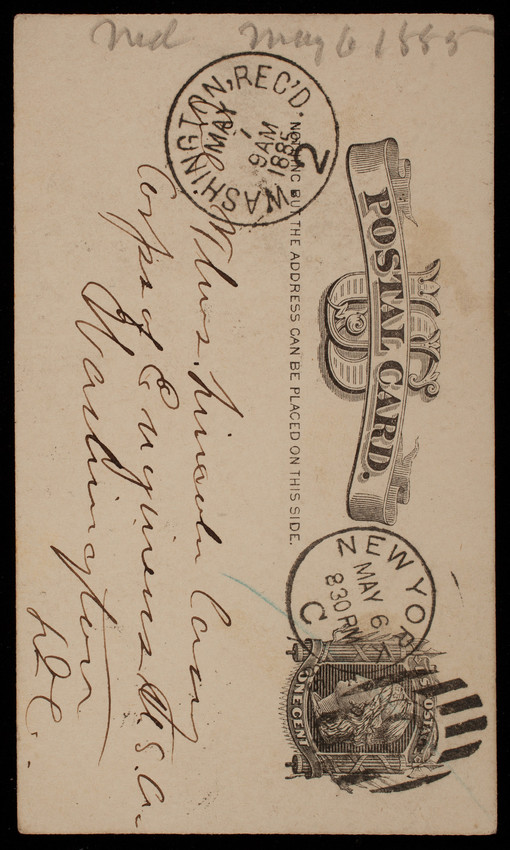 Ned May 6 1885
POSTAL CARD.
US
NOTHING BUT THE ADDRESS CAN BE PLACED ON THIS SIDE.
WASHINGTON, REC'D.
MAY 7
9AM
1885
2
NEW YORK
MAY 6
830PM
C
POSTAGE
ONE CENT
Thos. Lincoln Casey
Corps of Engineers, U.S.A.
Washington
D.C.